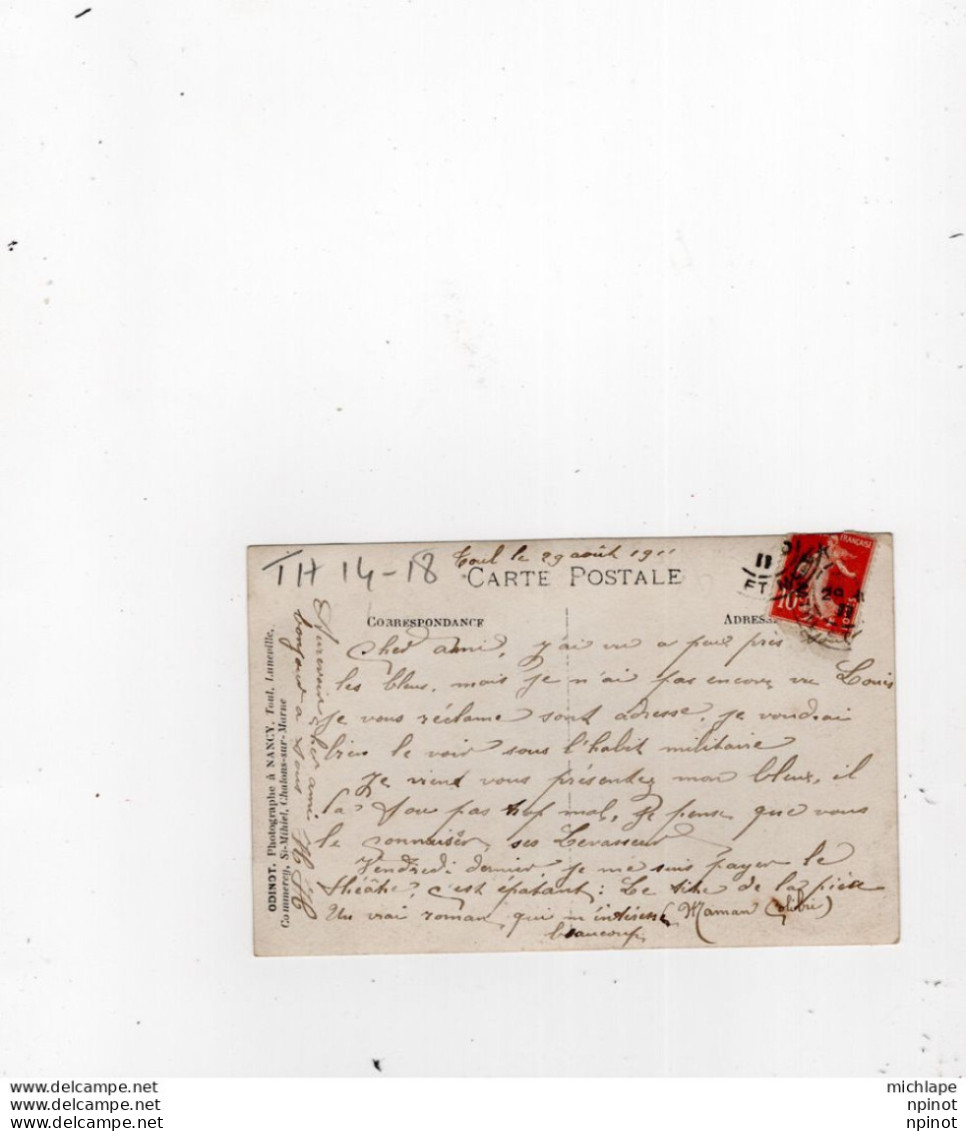 TH 14-18
Toul le 29 août 1911
CARTE POSTALE
CORRESPONDANCE
ADRESSE
FRANÇAISE
10
Cher ami, j'ai vu a peu près
les bleus, mais je n'ai pas encore vu Louis
je vous réclame sont adresse, je voudrai
bien le voir sous l'habit militaire
Je vient vous présentez mon bleux, il
la? pas trop mal, je pense que vous
le connaiser, ses Levasseur
Vendredi dernier, je me suis payer le
théâtre, c'est épatant: Le titre de la pièce
Un vrai roman, qui m'intéresse (Maman Colibri)
beaucoup
Aurevoir cher ami
bonjour a tous
ODINOT, Photographe à NANCY, Toul, Lunéville,
Commercy, St-Mihiel, Chalons-sur-Marne
michlape
npinot
npinot
https://www.delcampe.net
https://www.delcampe.net
https://www.delcampe.net